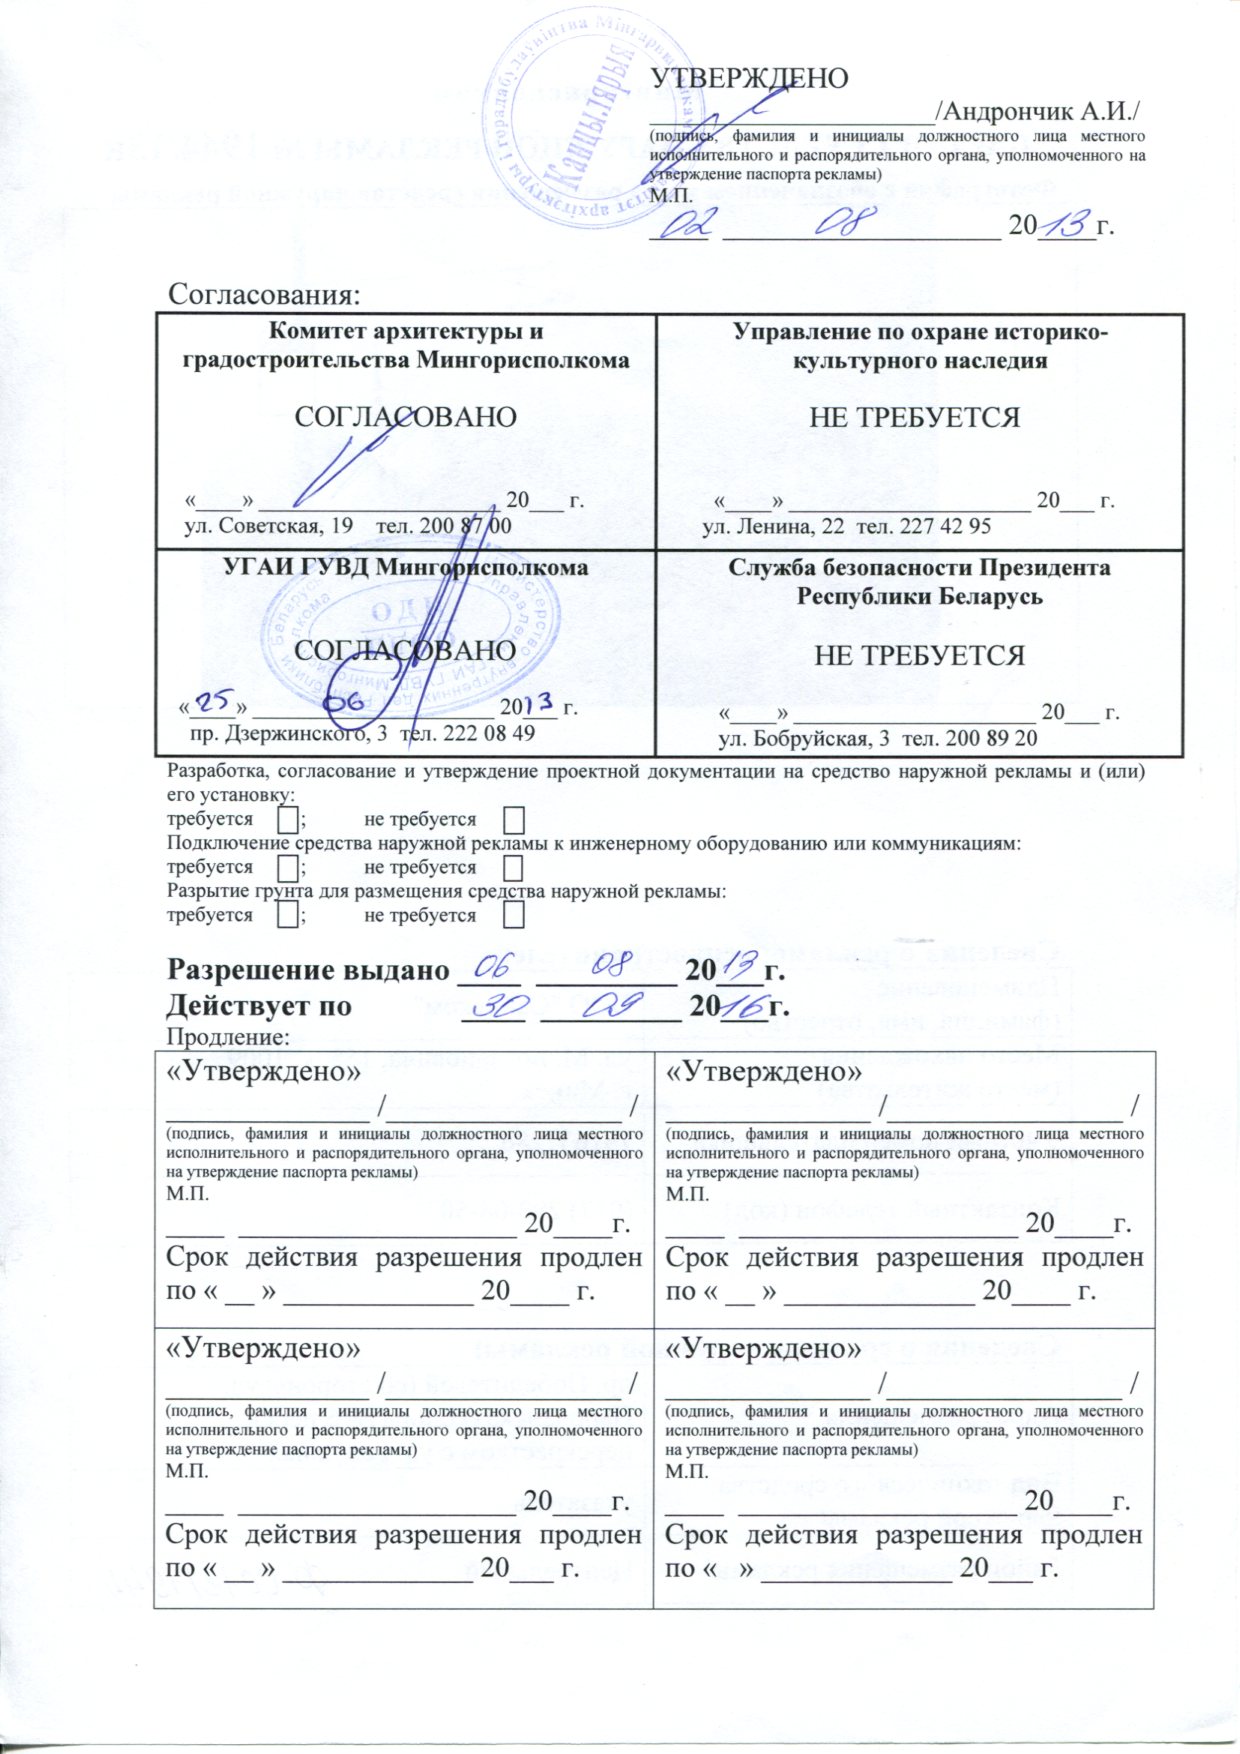 УТВЕРЖДЕНО
____________________/Андрончик А.И./
(подпись, фамилия и инициалы должностного лица местного
исполнительного и распорядительного органа, уполномоченного на
утверждение паспорта рекламы)
М.П.
02 08 2013 г.
Канцылярыя
Согласования:
Комитет архитектуры и
градостроительства Мингорисполкома
СОГЛАСОВАНО
«____» ____________________ 20___ г.
ул. Советская, 19 тел. 200 87 00
Управление по охране историко-
культурного наследия
НЕ ТРЕБУЕТСЯ
«____» ____________________ 20___ г.
ул. Ленина, 22 тел. 227 42 95
УГАИ ГУВД Мингорисполкома
СОГЛАСОВАНО
«25» 06 2013 г.
пр. Дзержинского, 3 тел. 222 08 49
Служба безопасности Президента
Республики Беларусь
НЕ ТРЕБУЕТСЯ
«____» ____________________ 20___ г.
ул. Бобруйская, 3 тел. 200 89 20
Разработка, согласование и утверждение проектной документации на средство наружной рекламы и (или)
его установку:
требуется ; не требуется
Подключение средства наружной рекламы к инженерному оборудованию или коммуникациям:
требуется ; не требуется
Разрытие грунта для размещения средства наружной рекламы:
требуется ; не требуется
Разрешение выдано 06 08 2013 г.
Действует по 30 09 2016 г.
Продление:
«Утверждено»
______________ /________________ /
(подпись, фамилия и инициалы должностного лица местного
исполнительного и распорядительного органа, уполномоченного
на утверждение паспорта рекламы)
М.П.
____ ___________________ 20____г.
Срок действия разрешения продлен
по « __ » _____________ 20____ г.
«Утверждено»
______________ /________________ /
(подпись, фамилия и инициалы должностного лица местного
исполнительного и распорядительного органа, уполномоченного
на утверждение паспорта рекламы)
М.П.
____ ___________________ 20____г.
Срок действия разрешения продлен
по « __ » _____________ 20____ г.
«Утверждено»
______________ /________________ /
(подпись, фамилия и инициалы должностного лица местного
исполнительного и распорядительного органа, уполномоченного
на утверждение паспорта рекламы)
М.П.
____ ___________________ 20____г.
Срок действия разрешения продлен
по « __ » _____________ 20___ г.
«Утверждено»
______________ /________________ /
(подпись, фамилия и инициалы должностного лица местного
исполнительного и распорядительного органа, уполномоченного
на утверждение паспорта рекламы)
М.П.
____ ___________________ 20____г.
Срок действия разрешения продлен
по « » _____________ 20___ г.